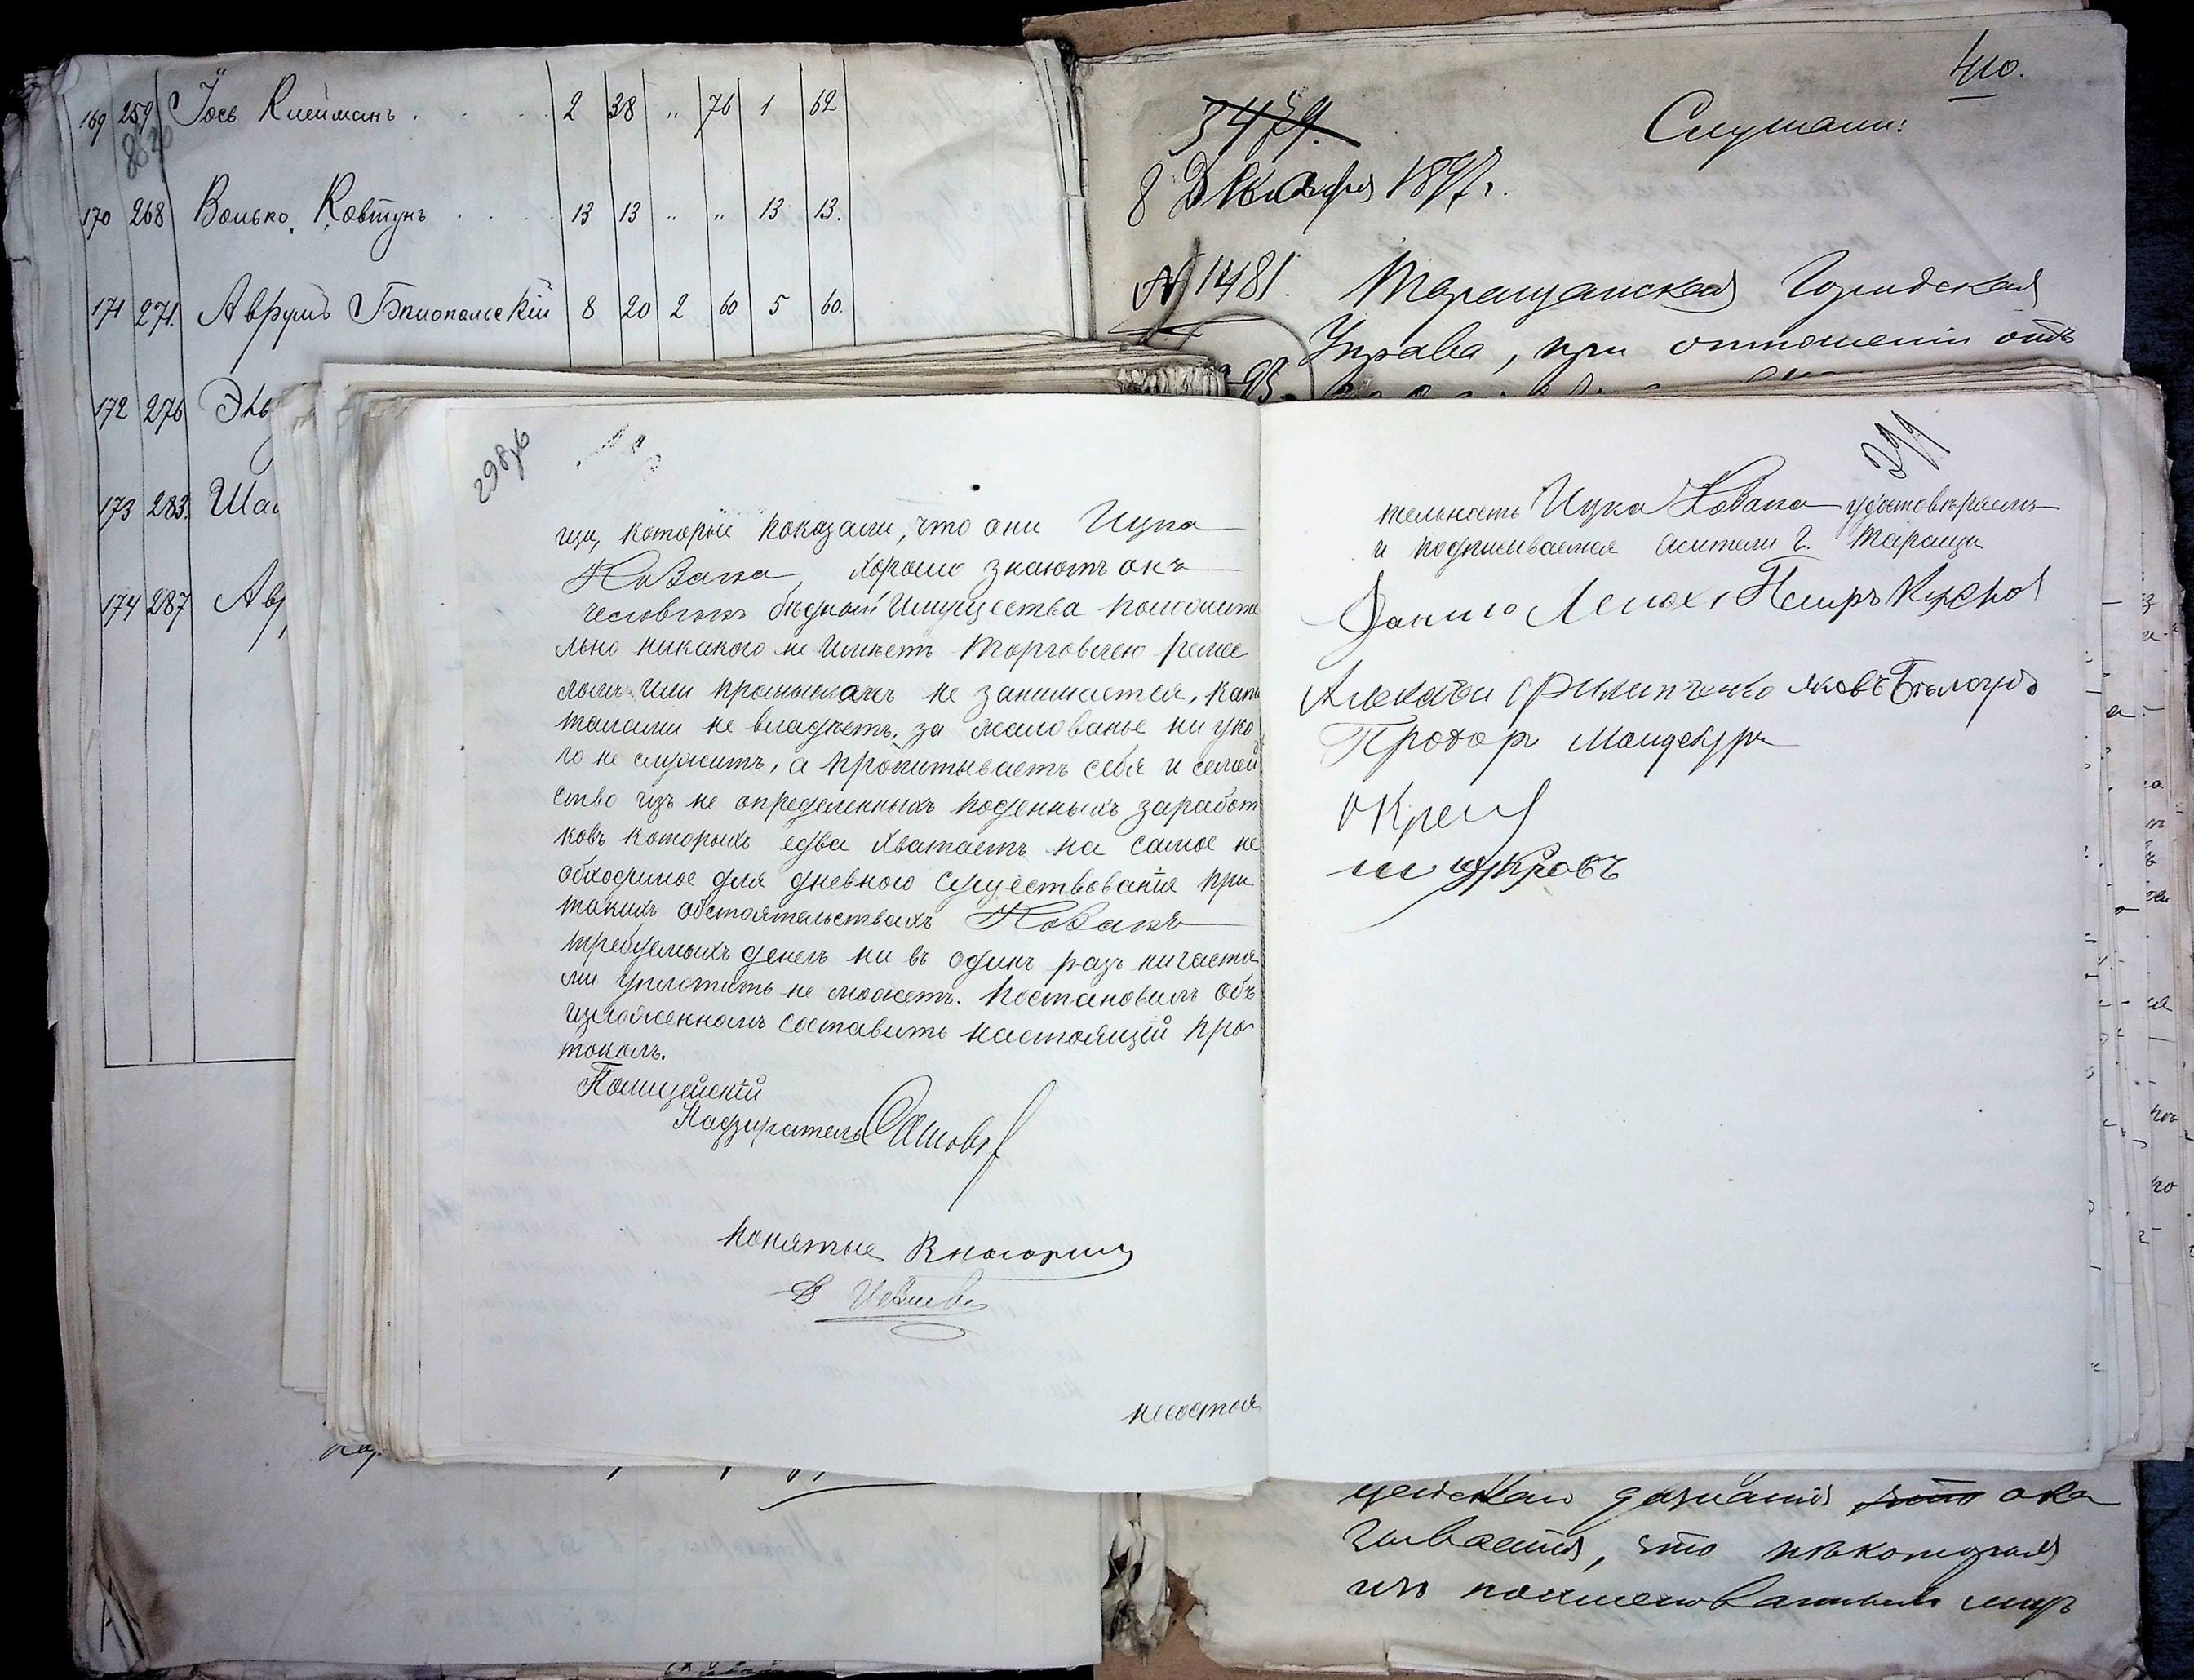 169 259 Іось Клейманъ 2 38 „ 76 1 62
170 268 Волько Ковтунъ 13 13 „ „ 13 13.
171 271. Аврумъ Бялопольскій 8 20 2 60 5 60.
172 276
173 283.
174 287
410.
3479.
Слушали:
8 Декабря 1897 г.
№ 1481. Таращанская Городская
Управа, при отношеніи отъ
298
щи, которые показали, что они Ицка
Новака, хорошо знаютъ онъ
человекъ бѣдный имущества положите
льно никакого не имѣетъ торговлею ремес
ломъ или промысломъ не занимается, капи
талами не владѣетъ, за жалованье ни у ко
го не служитъ, а пропитываетъ себя и семей
ство изъ не определенныхъ поденныхъ заработ
ковъ которыхъ едва хватаетъ на самое не
обходимое для дневного существованія при
такихъ обстоятельствахъ Новакъ
требуемыхъ денегъ ни въ одинъ разъ ни частя
ми уплатить не можетъ. Постановилъ объ
изложенномъ составить настоящій про
токолъ.
Полицейскій
Надзиратель
Понятые
несостоя
311
тельность Ицка Новака удостовѣряемъ
и подписываемся жители г. Таращи
Данило Петръ
Алексѣй Филипченко Яковъ
Прохор
цейскаго дознанія что ока
зывается, что нѣкоторыя
изъ поименованныхъ лицъ